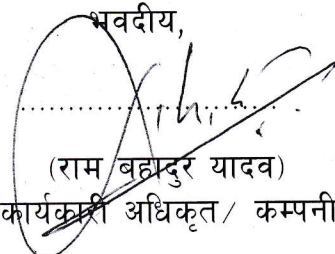 भवदीय,
(राम बहादुर यादव)
कार्यकारी अधिकृत/ कम्पनी